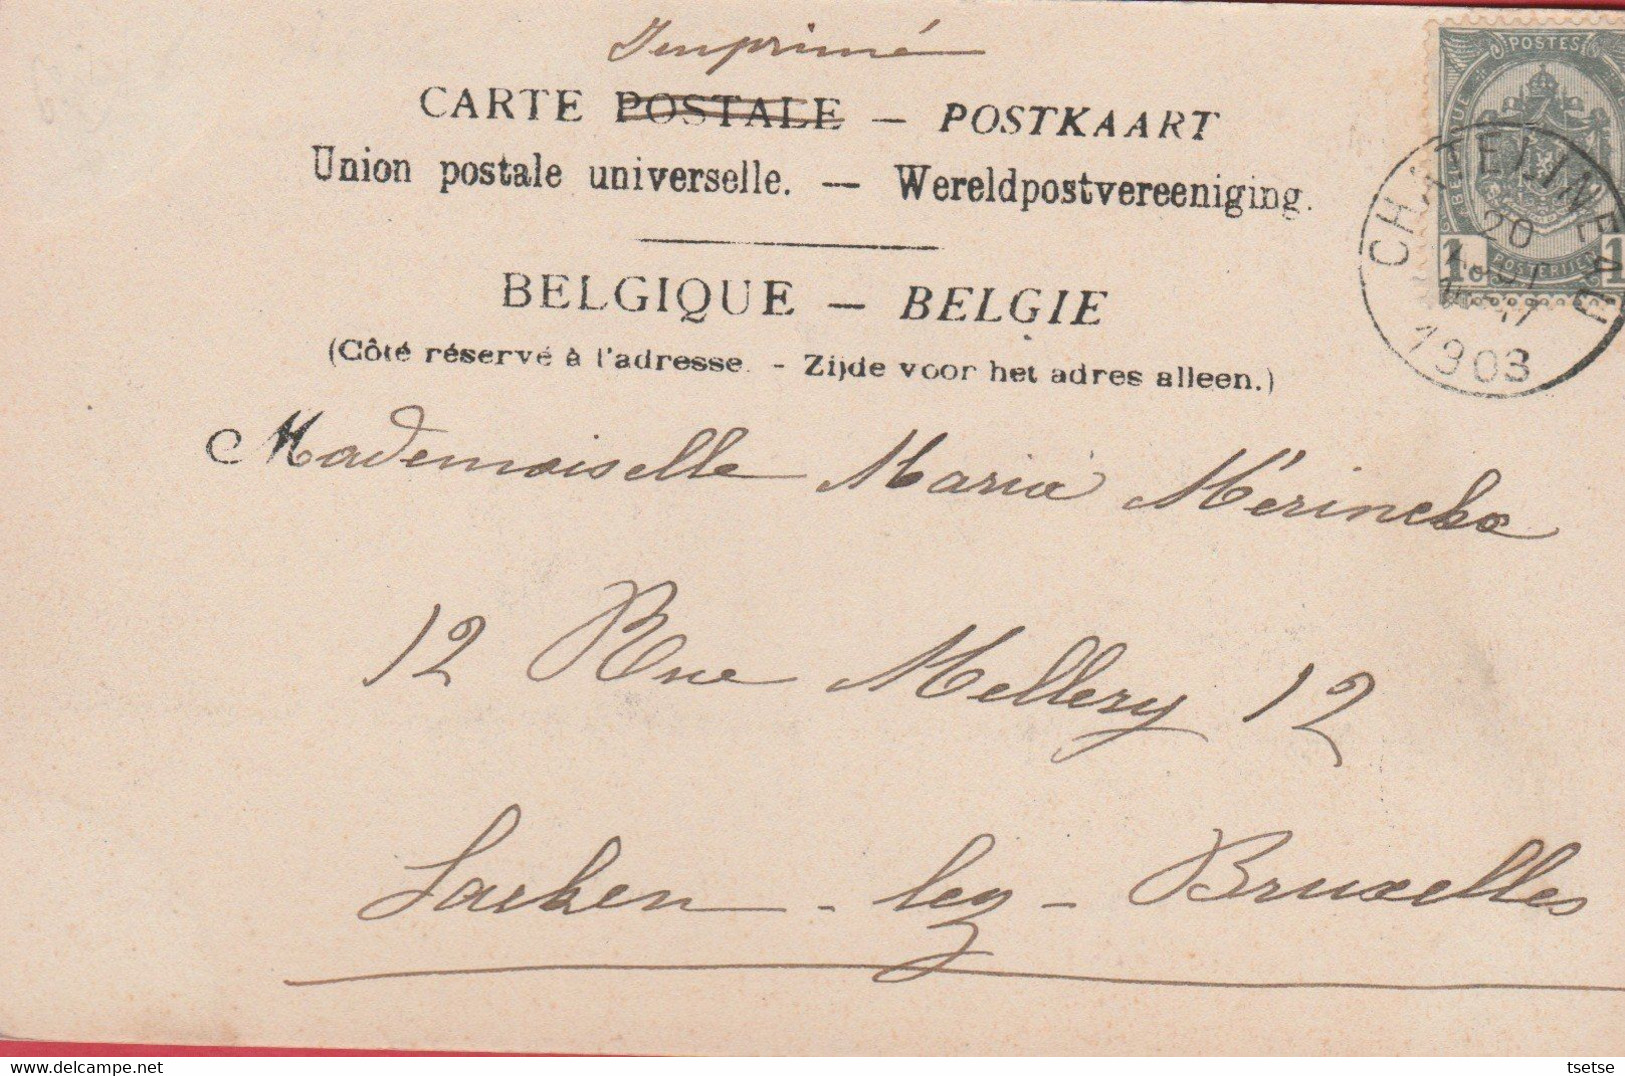 Imprimé
CARTE POSTALE — POSTKAART
Union postale universelle. — Wereldpostvereeniging.
BELGIQUE — BELGIE
(Côté réservé à l'adresse. - Zijde voor het adres alleen.)
Mademoiselle Maria
12 Rue Mellery 12
Laeken - lez - Bruxelles
POSTES
BELGIQUE
1 1
POSTERIJEN
CHATELINEAU
20
1903
delcampe.net
tsetse